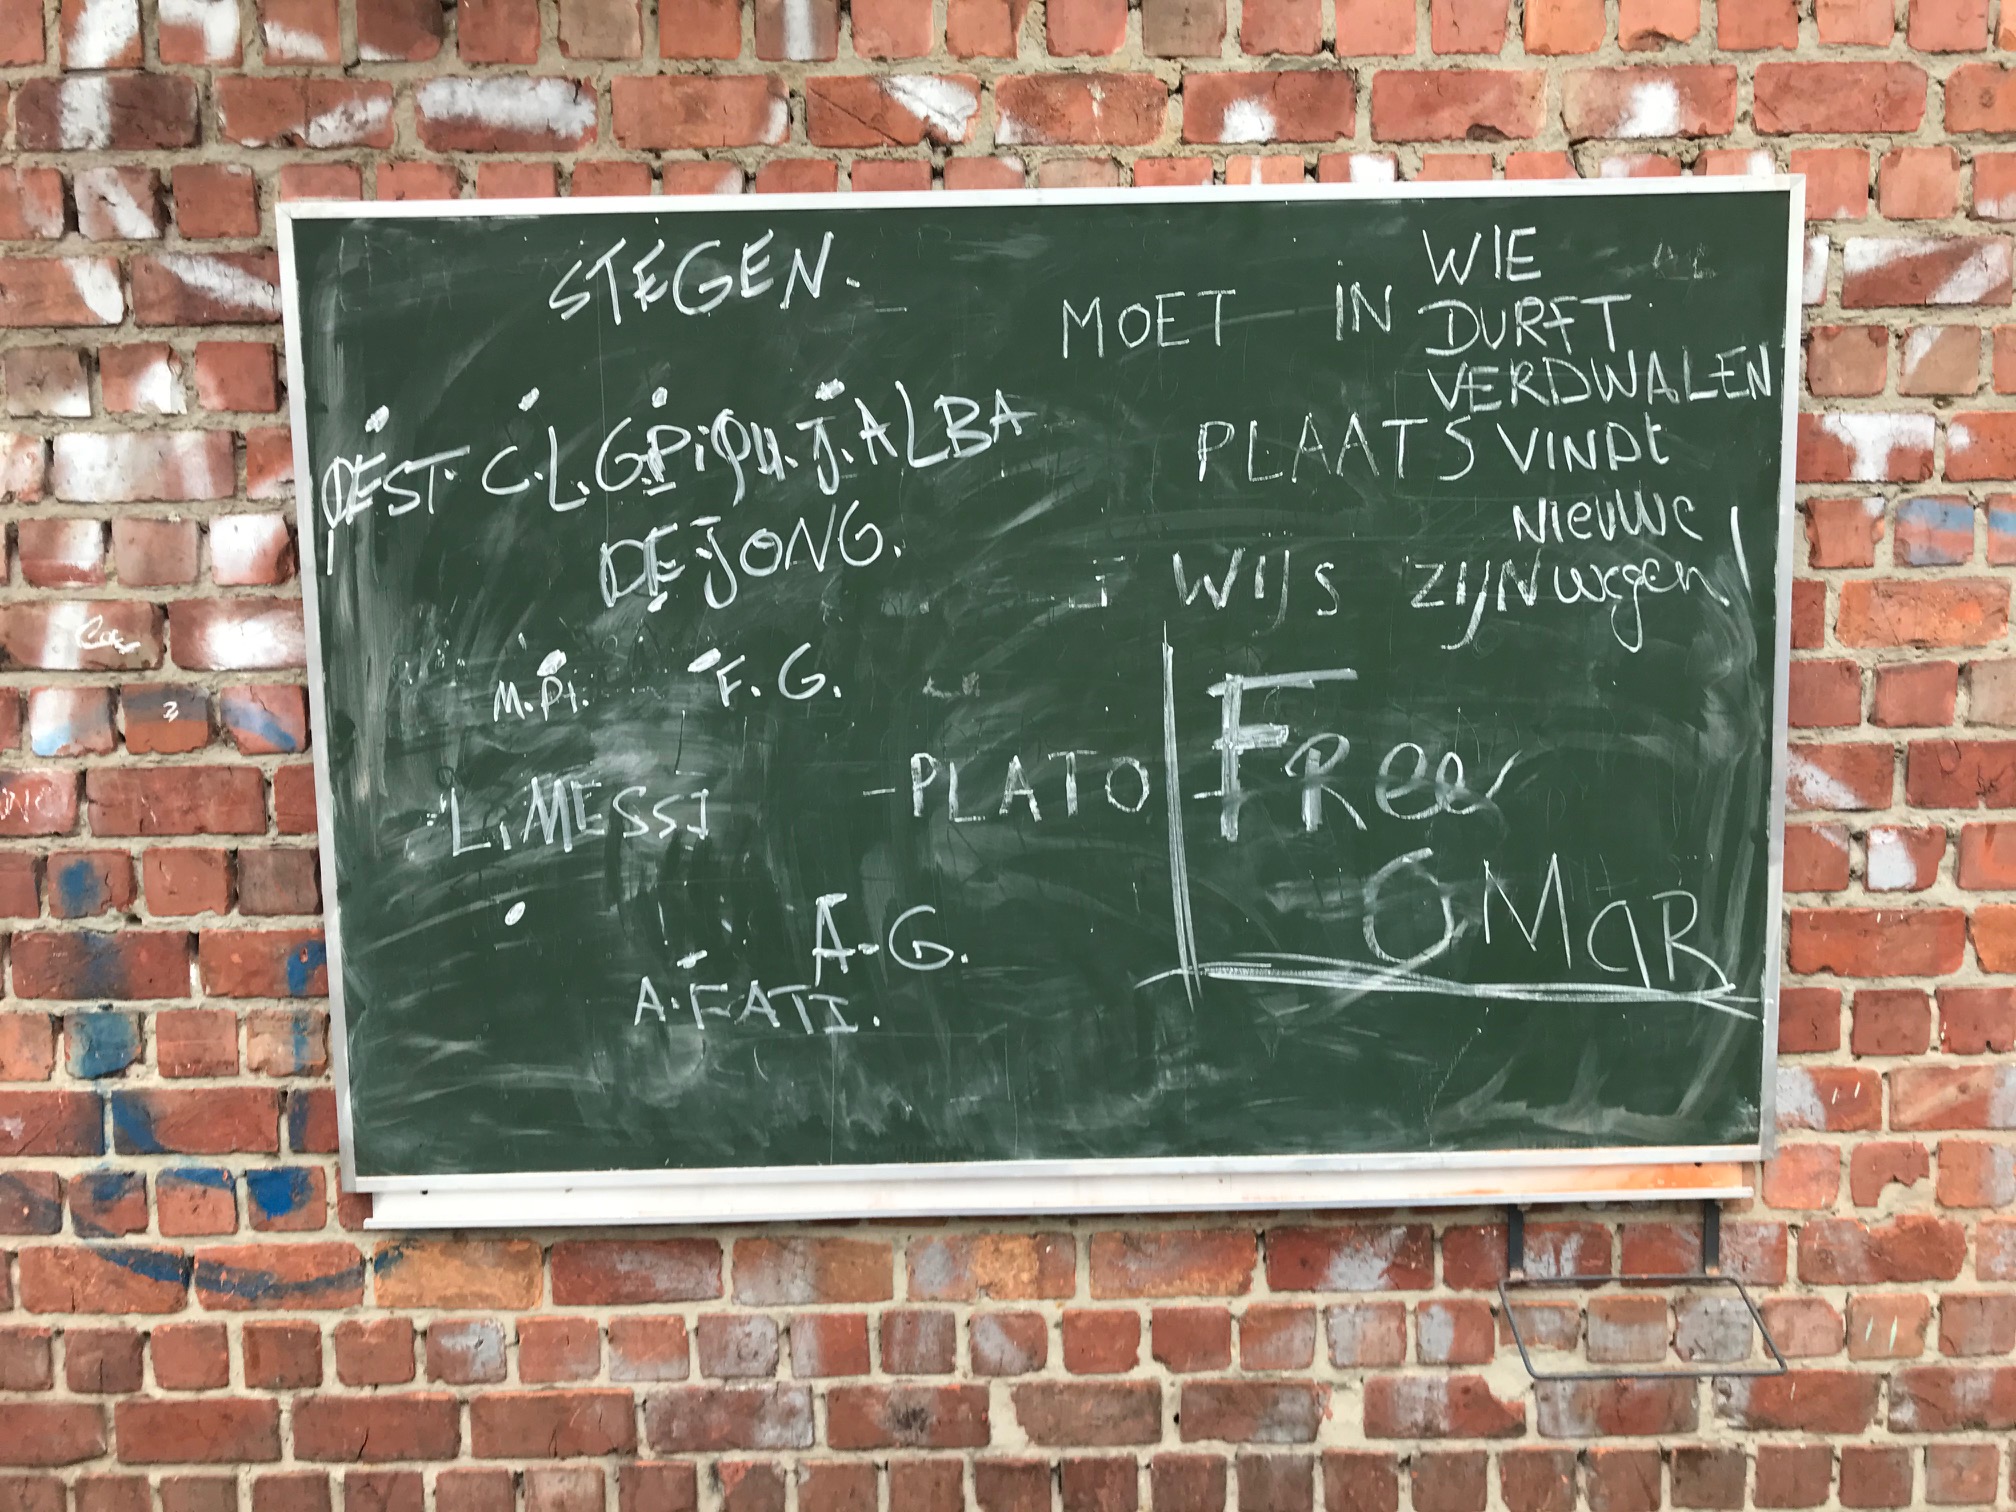 STEGEN.
DEST. C.L. G.PiQu. J.ALBA
DEJONG.
M.Pi. F. G.
L.MESSI
A-G.
A.FATI.
MOET IN
PLAATS
WIJS ZIJN
-PLATO
WIE
DURFT
VERDWALEN
VINDt
Nieuwe
wegen
FRee
OMaR